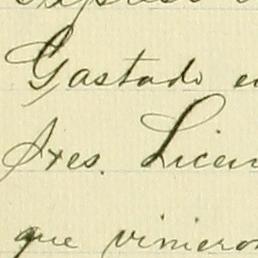 Gastado en
Sres. Licen
que vinieron